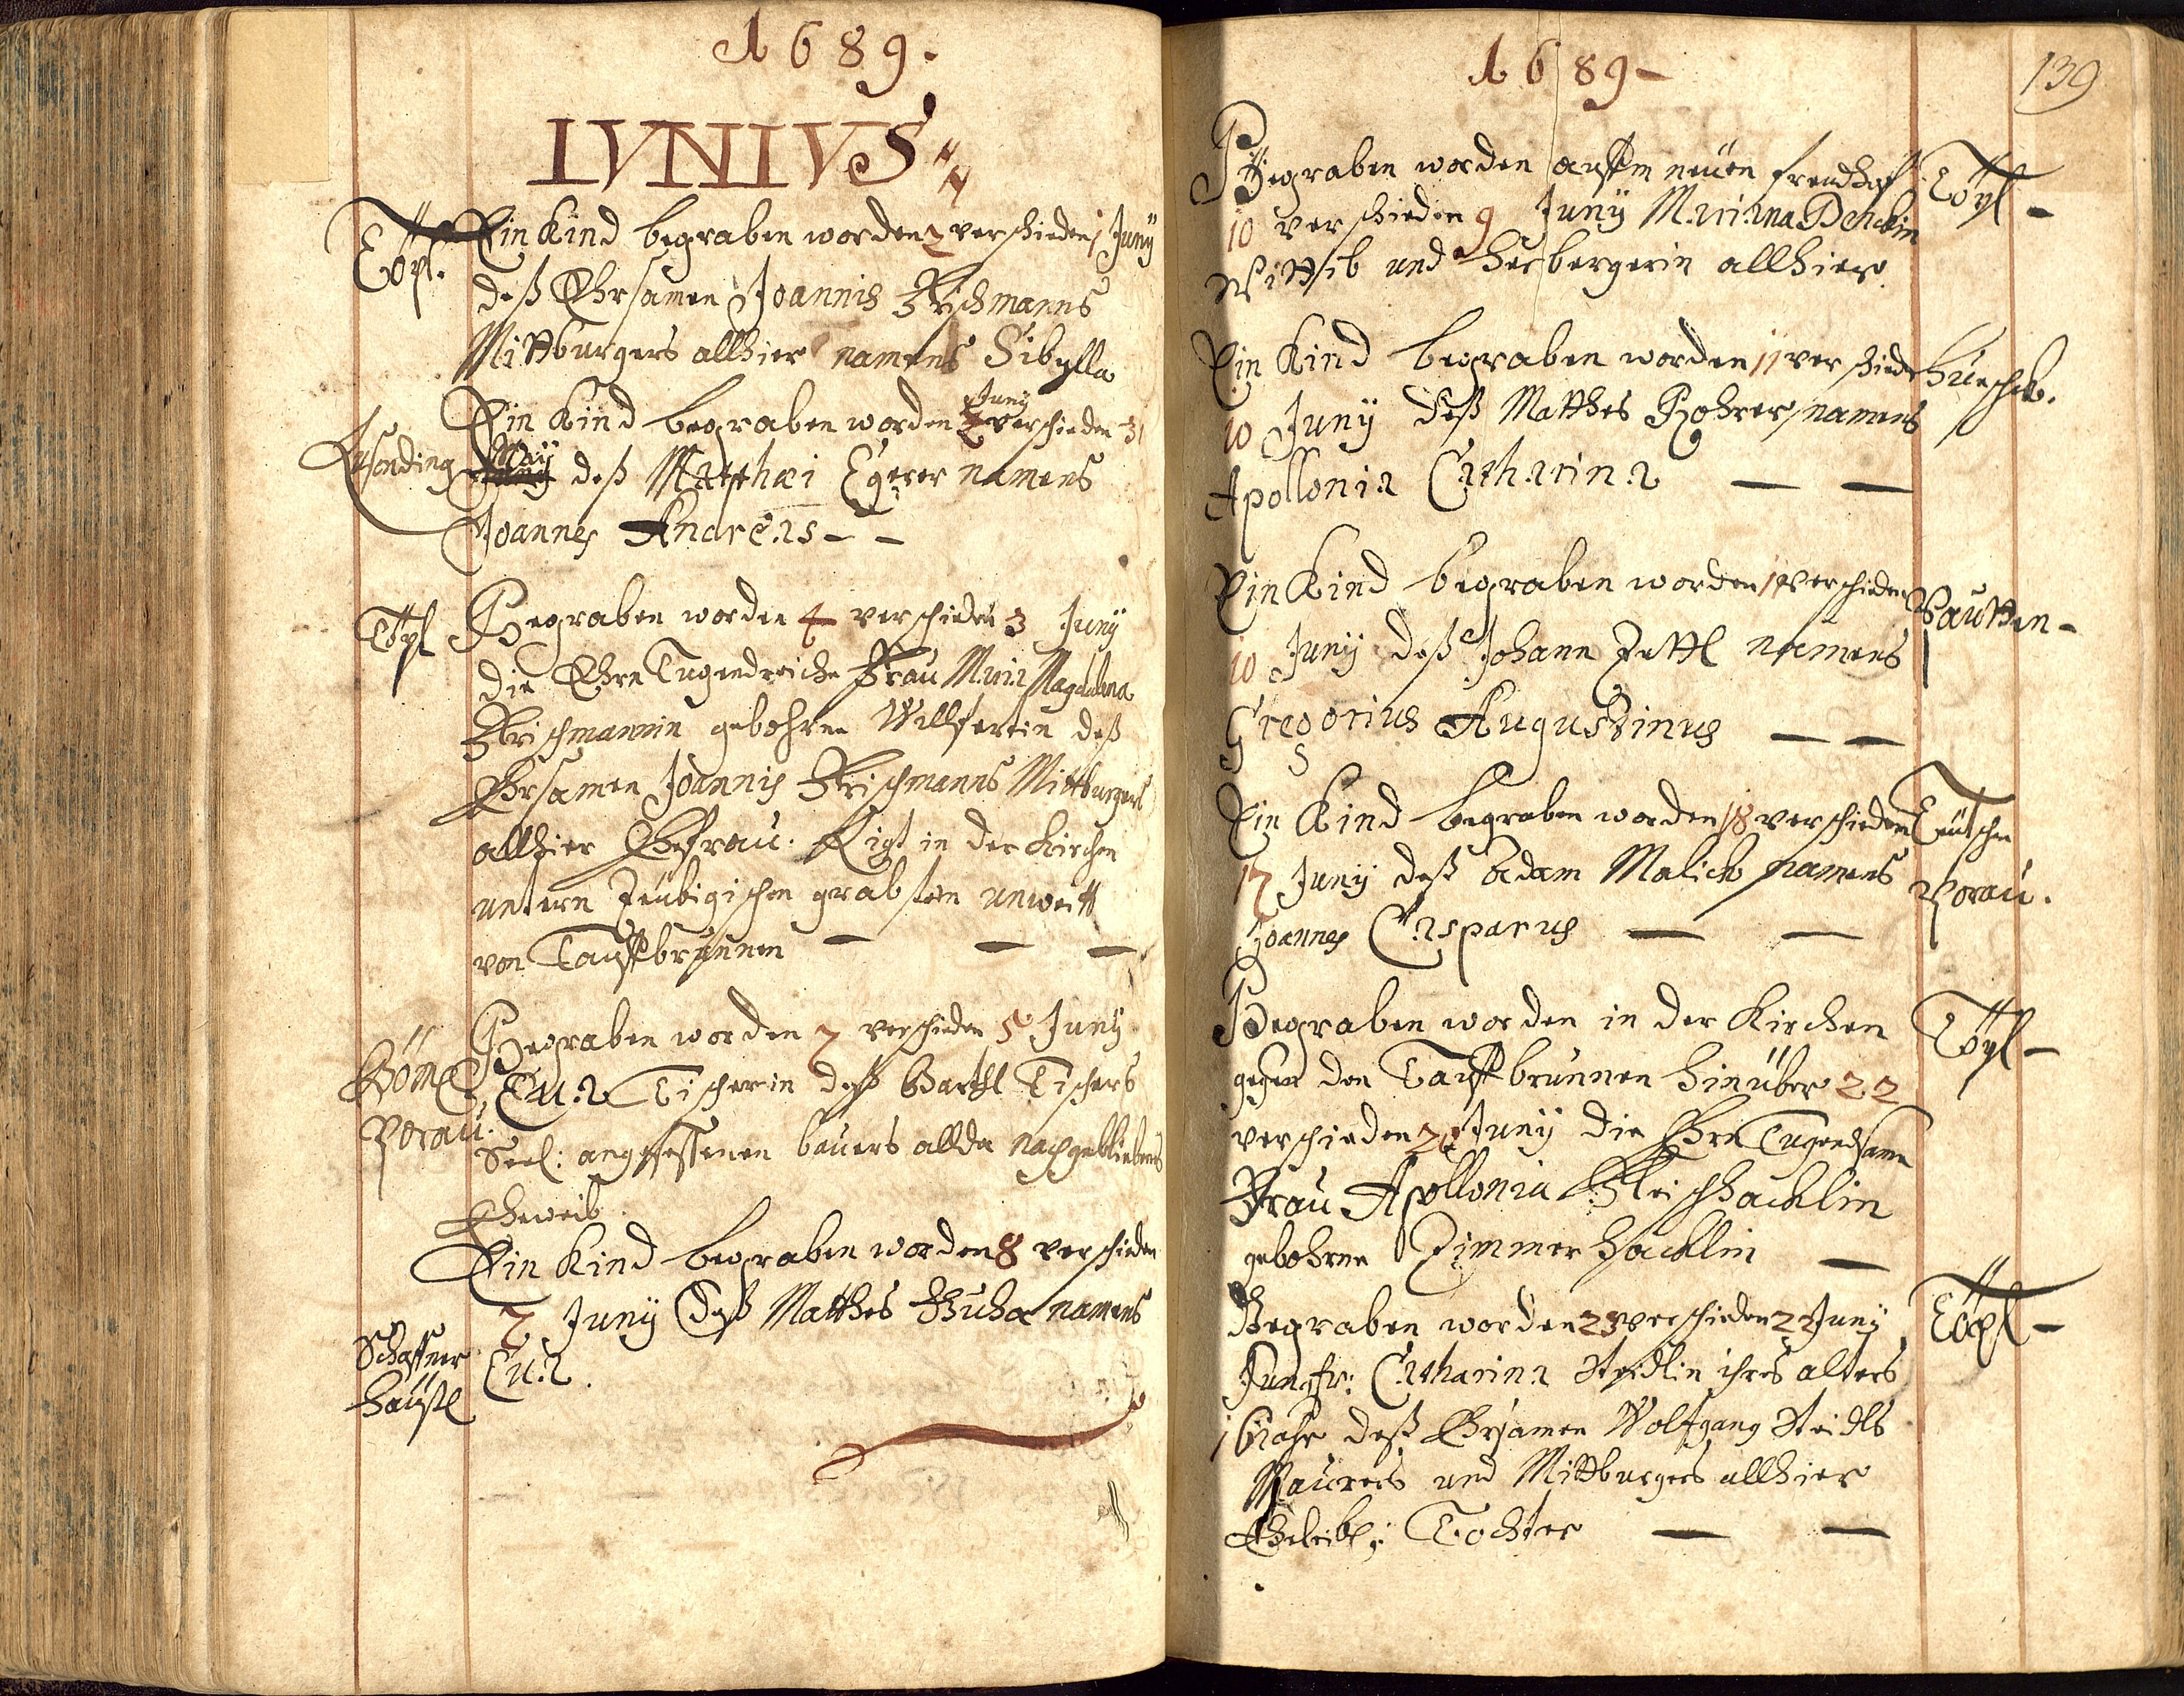 1689.
IVNIVS
Töpl. Ein Kind begraben worden 2 verschieden 1 Juny
deß Ehrsamen Joannis Frischmanns
Mittburgers allhier namens Sibylla
Juny
Ein Kind begraben worden 2 verschieden 31
May
Lusending deß Matthæi Egerer namens
Joannes Andreas - -
Töpl Begraben worden 4 verschieden 3 Juny
die Ehrn Tugendreiche Frau Maria Magdalena
Frischmannin gebohrne Willfertin deß
Ehrsamen Joannis Frischmanns Mittburgers
allhier Ehefrau. Ligt in der Kirchen
untern grabstein unweitt
von Tauffbrunnen — — —
Begraben worden 7 verschieden 5 Juny
Böm: Eva Tischerin deß Barthl Tischers
Borau. Seel: angesessenen bauers allda nachgebliebenes
Eheweib.
Ein Kind begraben worden 8 verschieden
7 Juny deß Matthes namens
Schaffner Eva.
häußl
1689 -
139
Begraben worden auffm neuen freudhoff Töpl -
10 verschieden 9 Juny Marianna
Wittib und Herbergerin allhier.
Ein Kind begraben worden 11 verschieden
10 Juny deß Matthes Rohrer namens
Apollonia Catharina — —
Ein Kind begraben worden 11 verschieden Pautten -
10 Juny deß Johann Zettl namens
Gregorius Augustinus — —
Ein Kind begraben worden 18 verschieden Teutschen
17 Juny deß Adam Malick namens Borau.
Joannes Casparus — —
Begraben worden in der Kirchen Töpl -
gegen den Tauffbrunnen hinüber 22
verschieden Juny die Ehrn Tugendsame
Frau Apollonia Fleischhacklin
gebohrne Zimmerhacklin —
Begraben worden 23 verschieden 22 Juny Töpl -
Jungfr: Catharina Steidlin ihres alters
16 Jahr deß Ehrsamen Wolfgang Steidls
Maurers und Mittburgers allhier
Eheleibl: Tochter — —